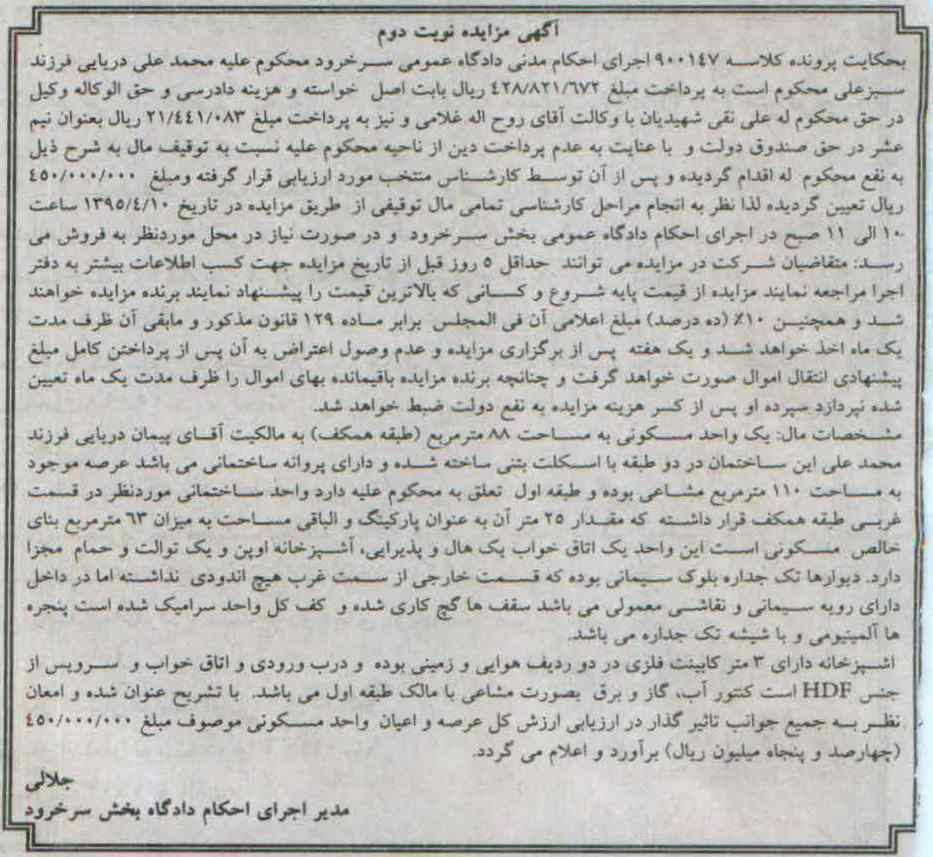 آگهی مزایده نوبت دوم
بحکایت پرونده کلاسه ۹۰۰۱٤۷ اجرای احکام مدنی دادگاه عمومی سرخرود محکوم علیه محمد علی دریایی فرزند
سبزعلی محکوم است به پرداخت مبلغ ٤۲۸/۸۲۱/٦۷۲ ریال بابت اصل خواسته و هزینه دادرسی و حق الوکاله وکیل
در حق محکوم له علی نقی شهیدیان با وکالت آقای روح اله غلامی و نیز به پرداخت مبلغ ۲۱/٤٤۱/۰۸۳ ریال بعنوان نیم
عشر در حق صندوق دولت و با عنایت به عدم پرداخت دین از ناحیه محکوم علیه نسبت به توقیف مال به شرح ذیل
به نفع محکوم له اقدام گردیده و پس از آن توسط کارشناس منتخب مورد ارزیابی قرار گرفته ومبلغ ٤٥۰/۰۰۰/۰۰۰
ریال تعیین گردیده لذا نظر به انجام مراحل کارشناسی تمامی مال توقیفی از طریق مزایده در تاریخ ۱۳۹٥/٤/۱۰ ساعت
۱۰ الی ۱۱ صبح در اجرای احکام دادگاه عمومی بخش سرخرود و در صورت نیاز در محل موردنظر به فروش می
رسد: متقاضیان شرکت در مزایده می توانند حداقل ٥ روز قبل از تاریخ مزایده جهت کسب اطلاعات بیشتر به دفتر
اجرا مراجعه نمایند مزایده از قیمت پایه شروع و کسانی که بالاترین قیمت را پیشنهاد نمایند برنده مزایده خواهند
شد و همچنین ۱۰٪ (ده درصد) مبلغ اعلامی آن فی المجلس برابر ماده ۱۲۹ قانون مذکور و مابقی آن ظرف مدت
یک ماه اخذ خواهد شد و یک هفته پس از برگزاری مزایده و عدم وصول اعتراض به آن پس از پرداختن کامل مبلغ
پیشنهادی انتقال اموال صورت خواهد گرفت و چنانچه برنده مزایده باقیمانده بهای اموال را ظرف مدت یک ماه تعیین
شده نپردازد سپرده او پس از کسر هزینه مزایده به نفع دولت ضبط خواهد شد.
مشخصات مال: یک واحد مسکونی به مساحت ۸۸ مترمربع (طبقه همکف) به مالکیت آقای پیمان دریایی فرزند
محمد علی این ساختمان در دو طبقه با اسکلت بتنی ساخته شده و دارای پروانه ساختمانی می باشد عرصه موجود
به مساحت ۱۱۰ مترمربع مشاعی بوده و طبقه اول تعلق به محکوم علیه دارد واحد ساختمانی موردنظر در قسمت
غربی طبقه همکف قرار داشته که مقدار ۲٥ متر آن به عنوان پارکینگ و الباقی مساحت به میزان ٦۳ مترمربع بنای
خالص مسکونی است این واحد یک اتاق خواب یک هال و پذیرایی، آشپزخانه اوپن و یک توالت و حمام مجزا
دارد. دیوارها تک جداره بلوک سیمانی بوده که قسمت خارجی از سمت غرب هیچ اندودی نداشته اما در داخل
دارای رویه سیمانی و نقاشی معمولی می باشد سقف ها گچ کاری شده و کف کل واحد سرامیک شده است پنجره
ها آلمینیومی و با شیشه تک جداره می باشد.
اشپزخانه دارای ۳ متر کابینت فلزی در دو ردیف هوایی و زمینی بوده و درب ورودی و اتاق خواب و سرویس از
جنس HDF است کنتور آب، گاز و برق بصورت مشاعی با مالک طبقه اول می باشد. با تشریح عنوان شده و امعان
نظر به جمیع جوانب تاثیر گذار در ارزیابی ارزش کل عرصه و اعیان واحد مسکونی موصوف مبلغ ٤٥۰/۰۰۰/۰۰۰
(چهارصد و پنجاه میلیون ریال) برآورد و اعلام می گردد.
جلالی
مدیر اجرای احکام دادگاه بخش سرخرود